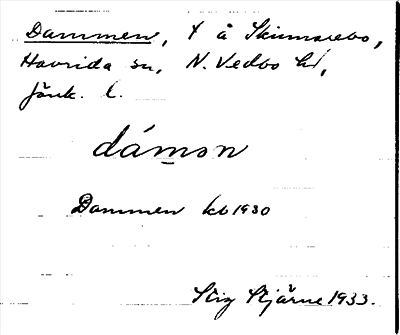 Dammen, t å Skinnarebo,
Haurida sn, N. Vedbo hd,
Jönk. l.
dámən
Dammen kb 1930
Stig Stjärne 1933.